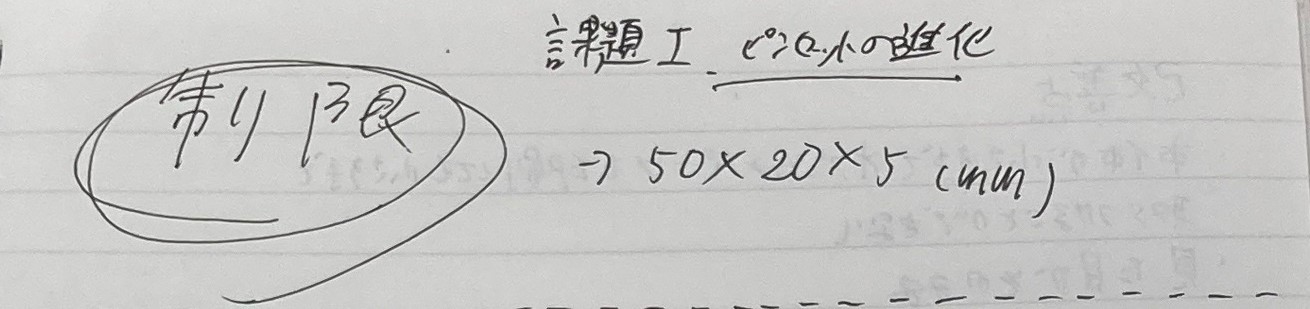 課題I ピンセットの進化
制限
→ 50×20×5 (mm)